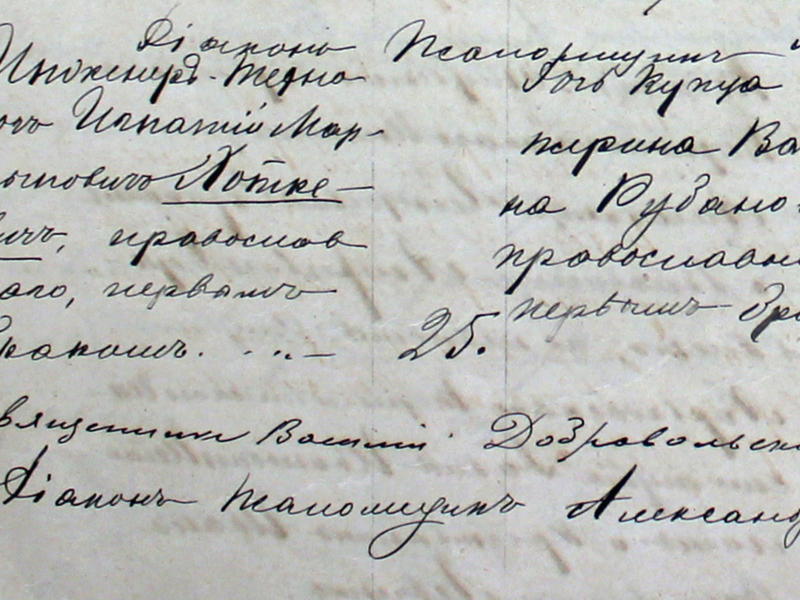 Діаконъ Псаломщикъ
Инженеръ-Техно
логъ Игнатій Мар-
тыновичъ Хотке-
вичъ, православ
наго, первымъ
бракомъ.
25.
Дочь купца
Ва
на Рубано
православна
первымъ бра
священникъ Василій Добровольск
Діаконъ Псаломщикъ Александ